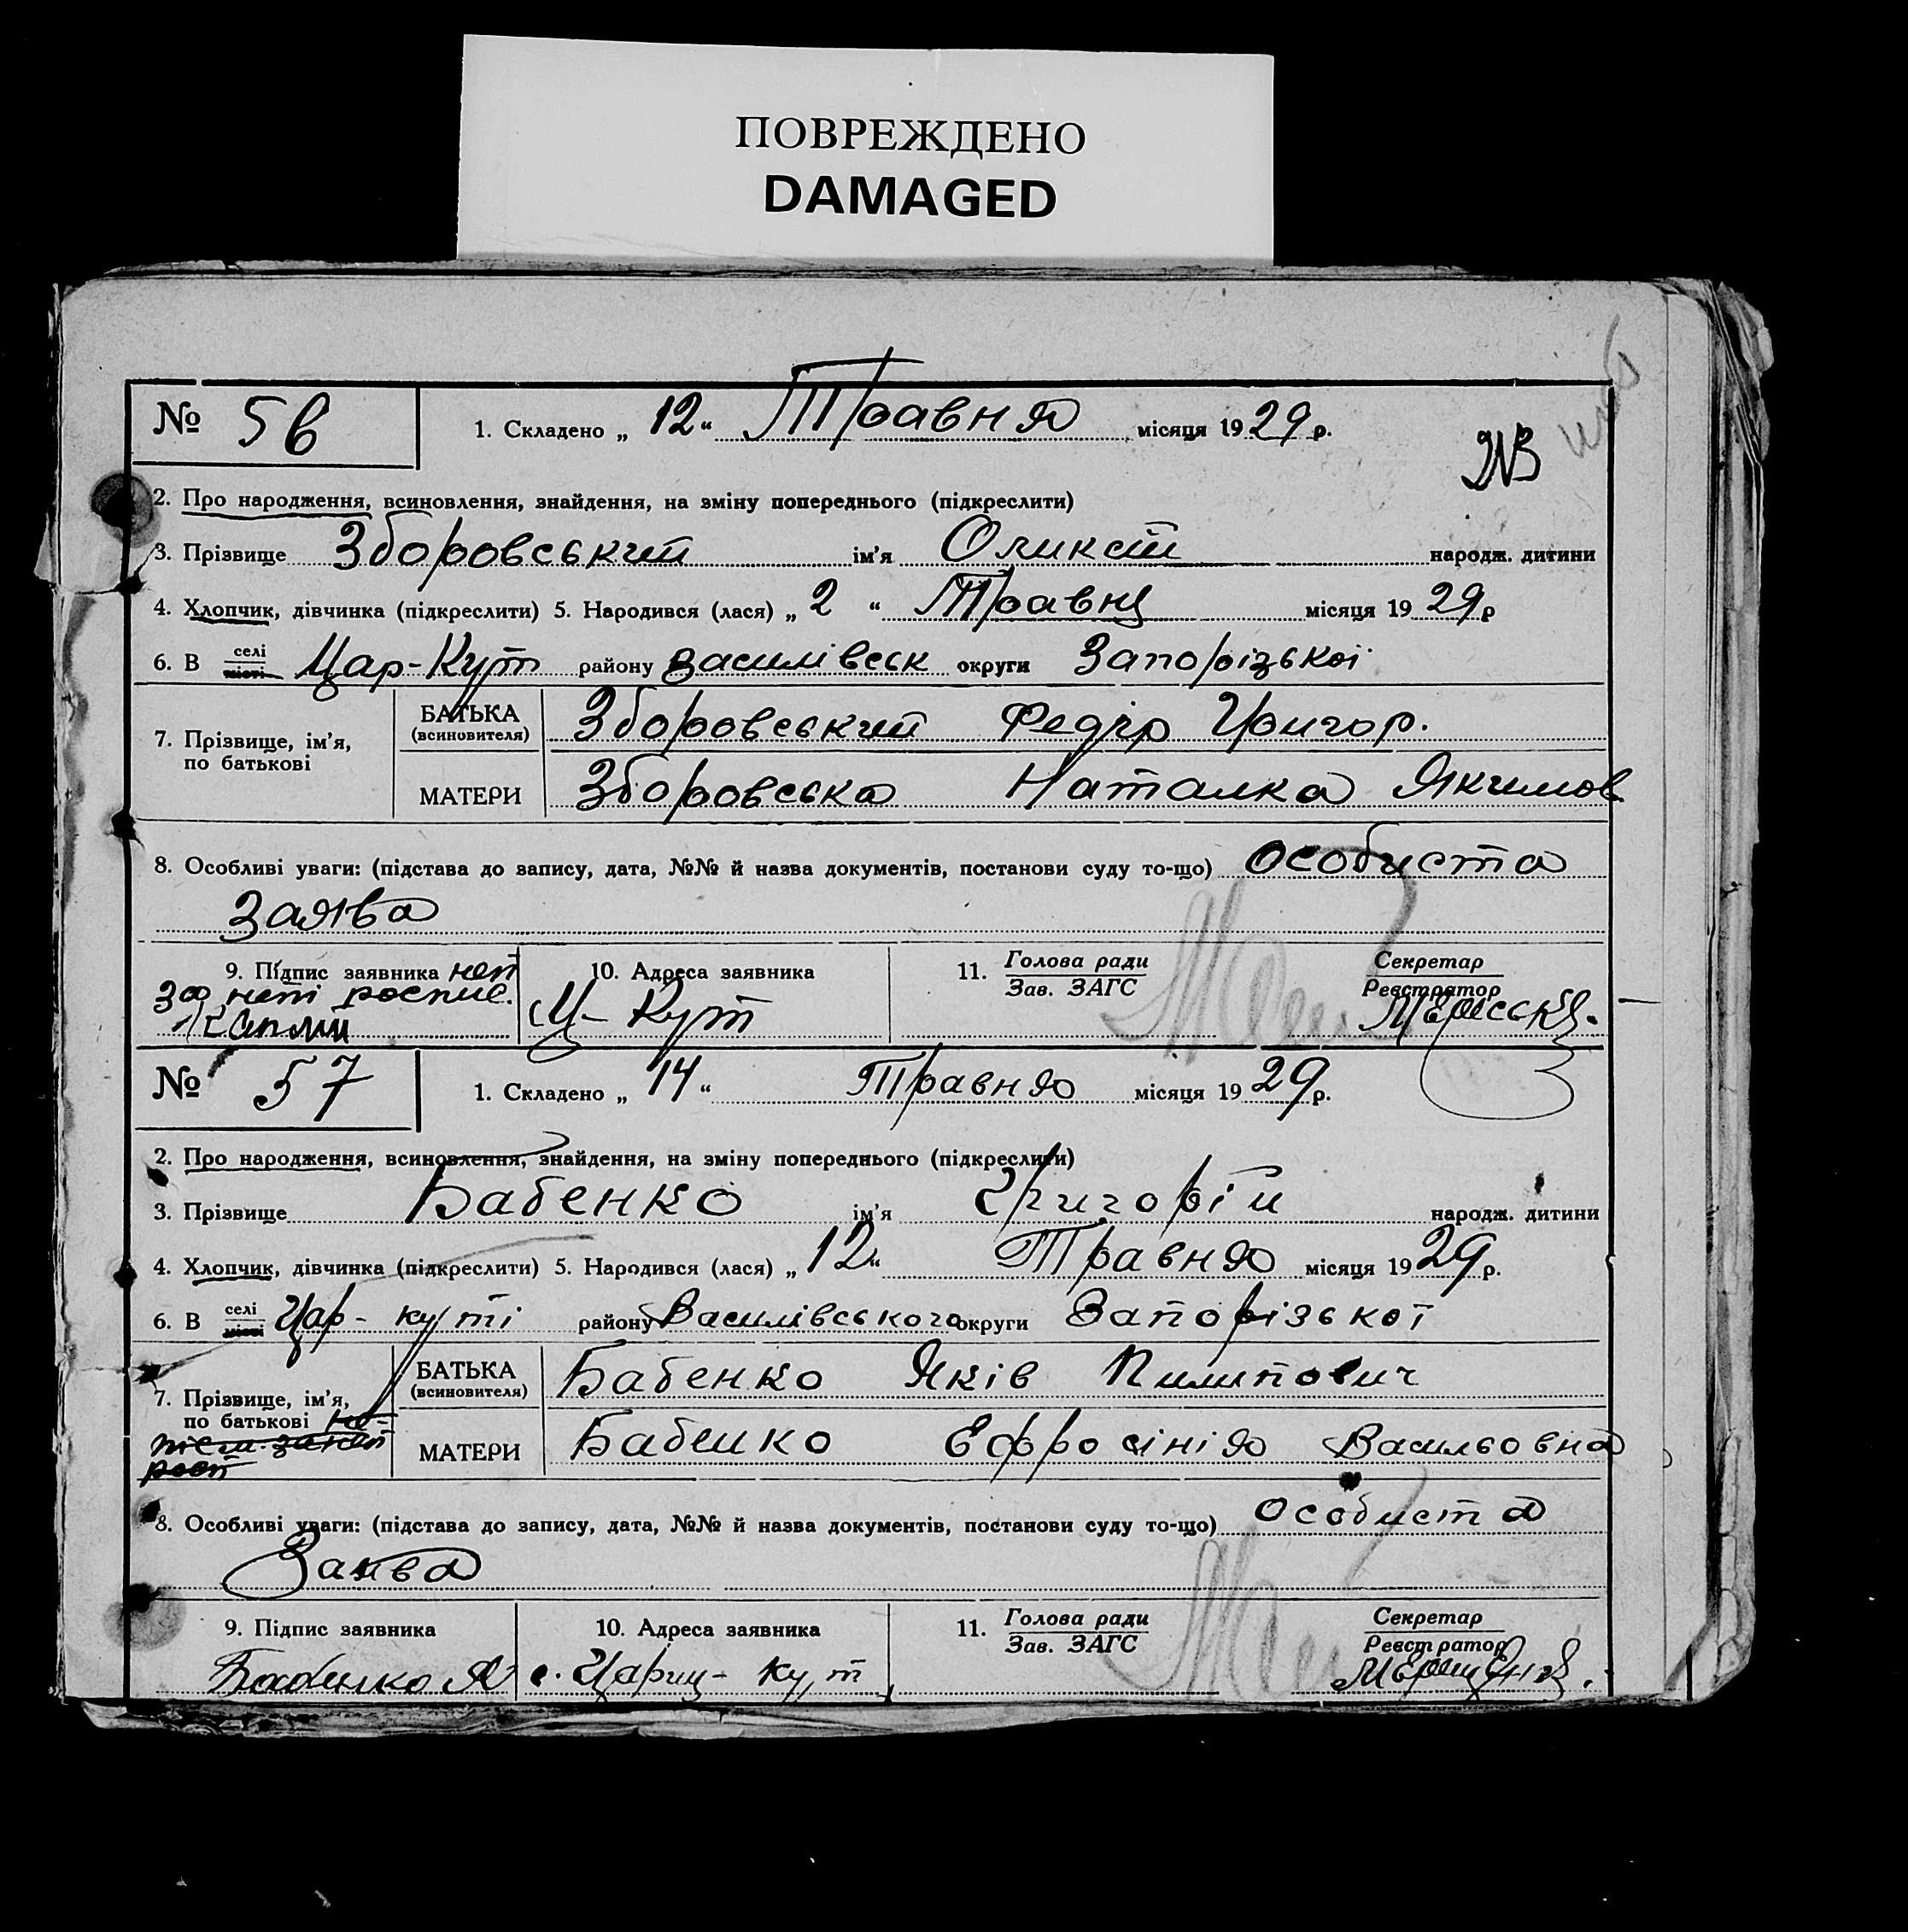 ПОВРЕЖДЕНО
DAMAGED
№ 56
1. Складено „ 12 “ Травня місяця 1929 р.
2. Про народження, всиновлення, знайдення, на зміну попереднього (підкреслити)
3. Прізвище Зборовський ім'я народж. дитини
4. Хлопчик, дівчинка (підкреслити) 5. Народився (лася) „ 2 “ Травня місяця 1929 р
6. В селі місті Цар-Кут району Василівськ округи Запорізької
7. Прізвище, ім'я, по батькові
БАТЬКА (всиновителя) Зборовський Федір Григор.
МАТЕРИ Зборовська Наталка Якимов
8. Особливі уваги: (підстава до запису, дата, №№ й назва документів, постанови суду то-що) особиста
заява
9. Підпис заявника
10. Адреса заявника
11. Голова ради
Зав. ЗАГС
Секретар
Реєстратор
Ц-Кут
№ 57
1. Складено „ 14 “ Травня місяця 1929 р.
2. Про народження, всиновлення, знайдення, на зміну попереднього (підкреслити)
3. Прізвище Бабенко ім'я Григорій народж. дитини
4. Хлопчик, дівчинка (підкреслити) 5. Народився (лася) „ 12 “ Травня місяця 1929 р.
6. В селі місті Цар-куті району Василівського округи Запорізької
7. Прізвище, ім'я, по батькові
БАТЬКА (всиновителя) Бабенко Яків Пилипович
МАТЕРИ Бабенко Єфросінія Васильовна
8. Особливі уваги: (підстава до запису, дата, №№ й назва документів, постанови суду то-що) особиста
Заява
9. Підпис заявника
10. Адреса заявника
11. Голова ради
Зав. ЗАГС
Секретар
Реєстратор
Бабенко Я
с. Цариц-Кут